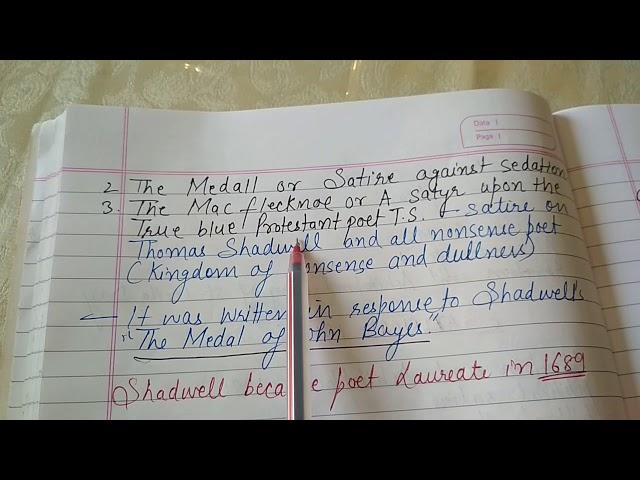 Date 1
Page 1
2 The Medall or Satire against sedation
3. The Mac flecknoe or A satyr upon the
True blue Protestant poet T.S. satire on
Thomas Shadwell and all nonsense poet
(Kingdom of nonsense and dullness)
It was written in response to Shadwell's
"The Medal of John Bayes"
Shadwell became poet Laureate in 1689